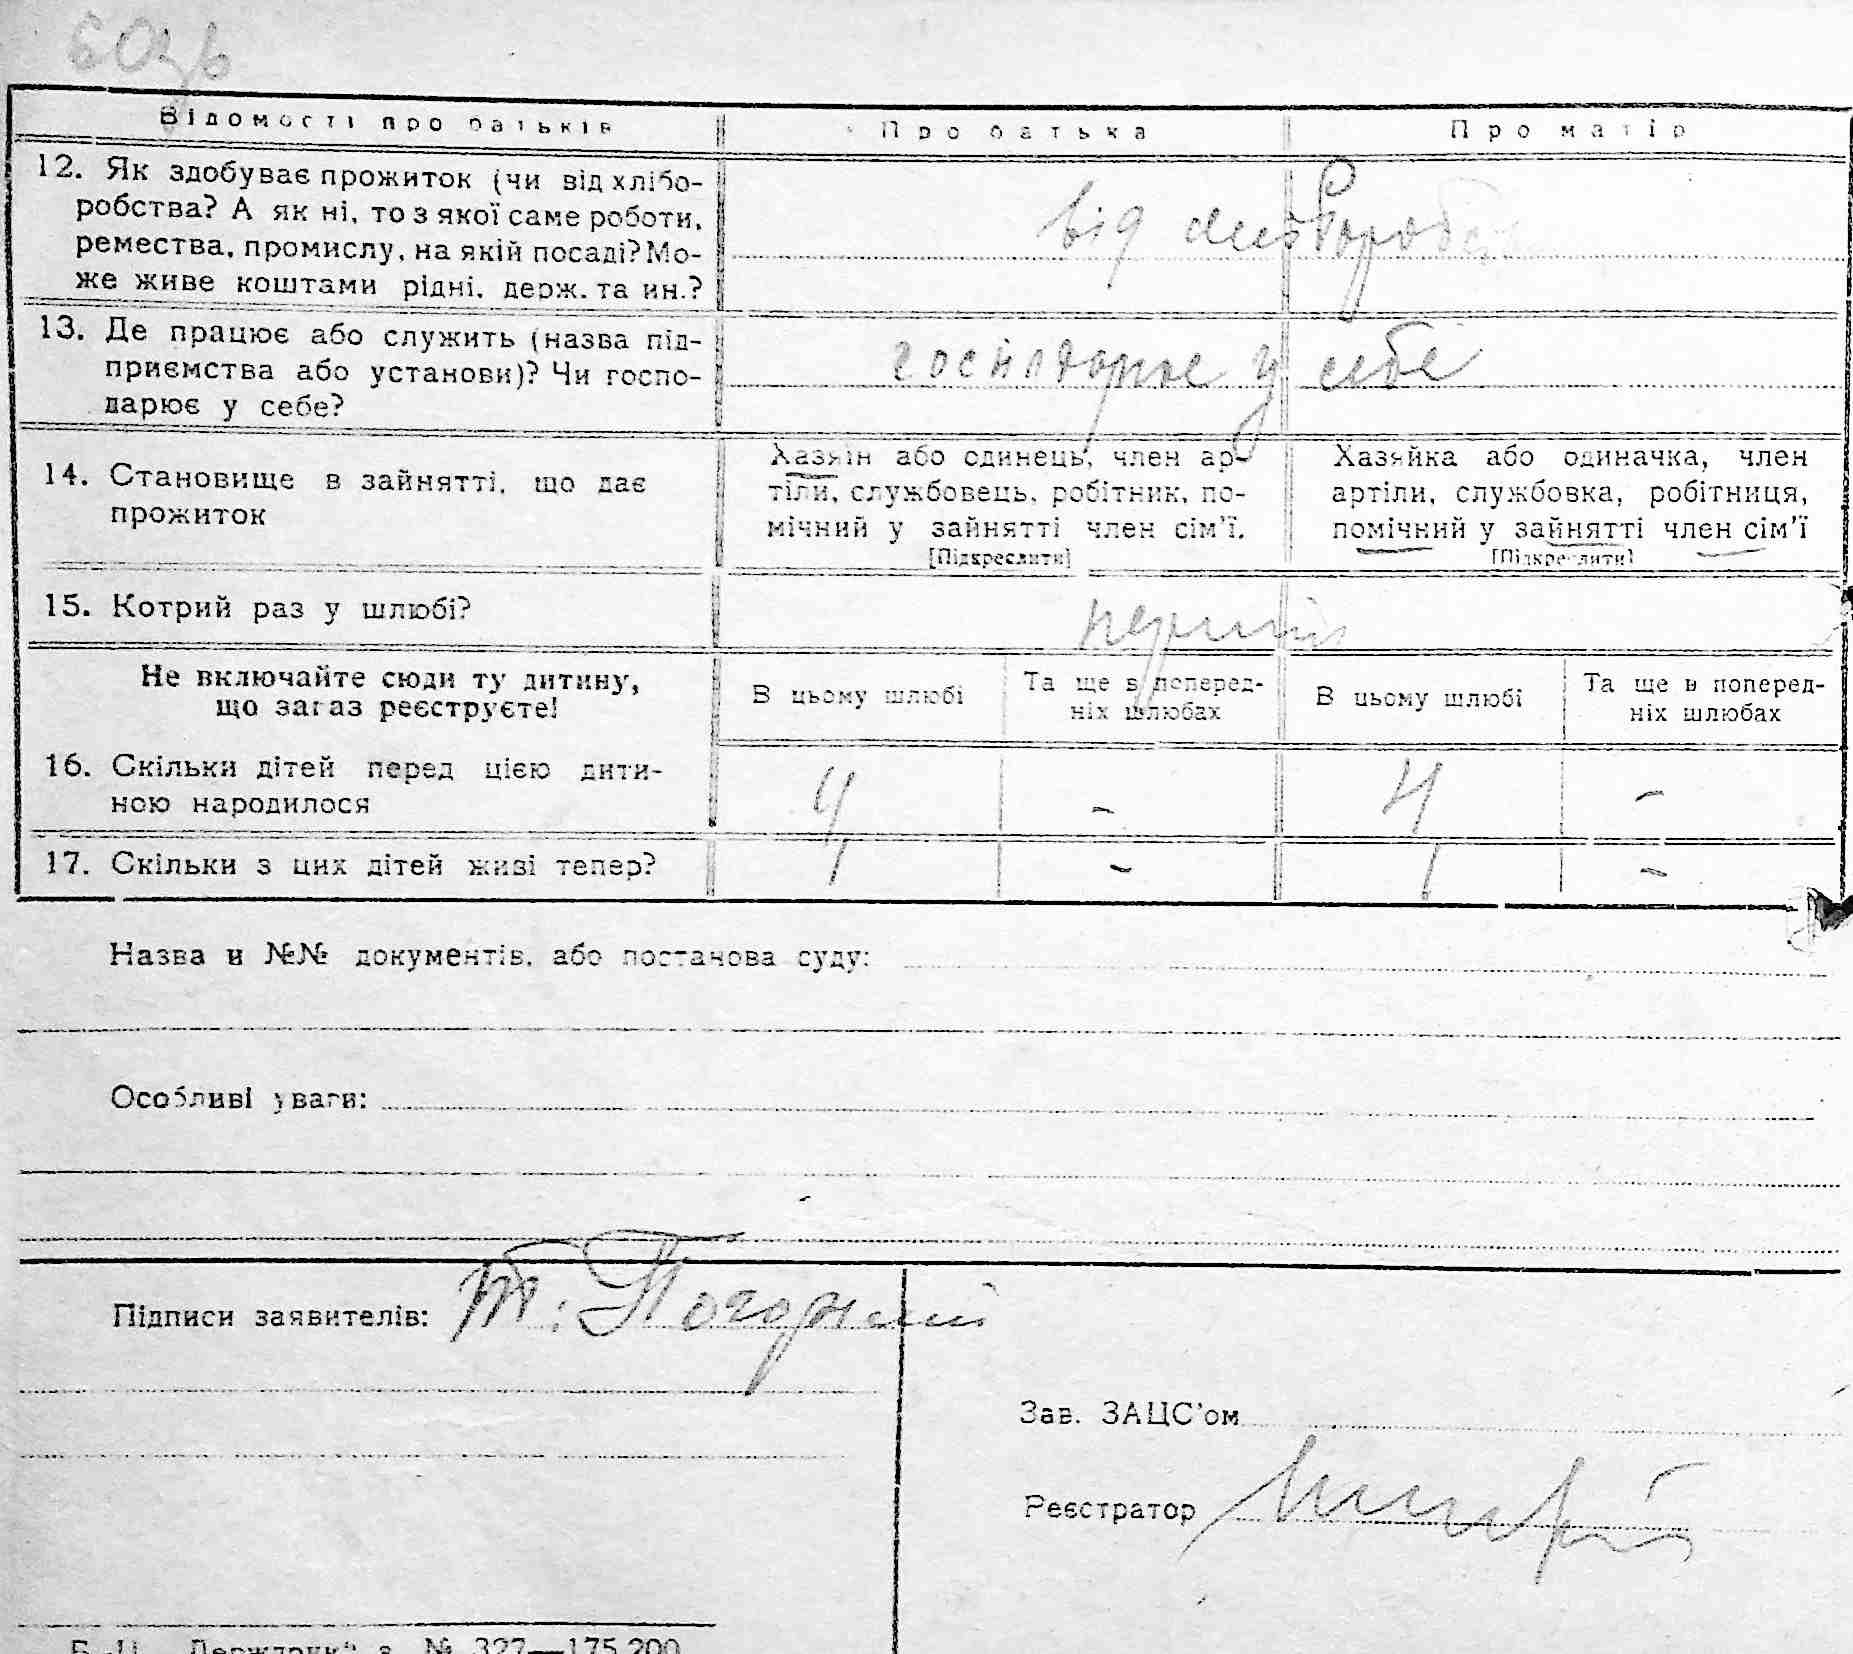 60зв
Відомості про батьків
Про батька
Про матір
12. Як здобуває прожиток (чи від хлібо-
робства? А як ні, то з якої саме роботи,
ремества, промислу, на якій посаді? Мо-
же живе коштами рідні, держ. та ин.?
від хліборобства
13. Де працює або служить (назва під-
приємства або установи)? Чи госпо-
дарює у себе?
господарює у себе
14. Становище в зайнятті, що дає
прожиток
Хазяїн або одинець, член ар-
тіли, службовець, робітник, по-
мічний у зайнятті член сім'ї.
[Підкреслити]
Хазяйка або одиначка, член
артіли, службовка, робітниця,
помічний у зайнятті член сім'ї
[Підкреслити]
15. Котрий раз у шлюбі?
перший
Не включайте сюди ту дитину,
що зараз реєструєте!
В цьому шлюбі
Та ще в поперед-
ніх шлюбах
В цьому шлюбі
Та ще в поперед-
ніх шлюбах
16. Скільки дітей перед цією дити-
ною народилося
4 - 4 -
17. Скільки з цих дітей живі тепер?
- -
Назва и №№ документів, або постанова суду:
Особливі уваги:
Підписи заявителів:
Зав. ЗАЦС'ом
Реєстратор
Б.-Ц. „Держдрук" з. № 327—175.200